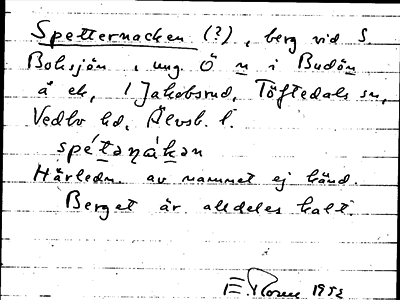 Spetternacken (?), berg vid S.
Boksjön, ung. Ö n i Budön
å ek, 1 Jakobsrud, Töftedals sn,
Vedbo hd, Älvsb. l.
spétanákan
Härledn. av namnet ej känd.
Berget är alldeles kalt.
E. 1953